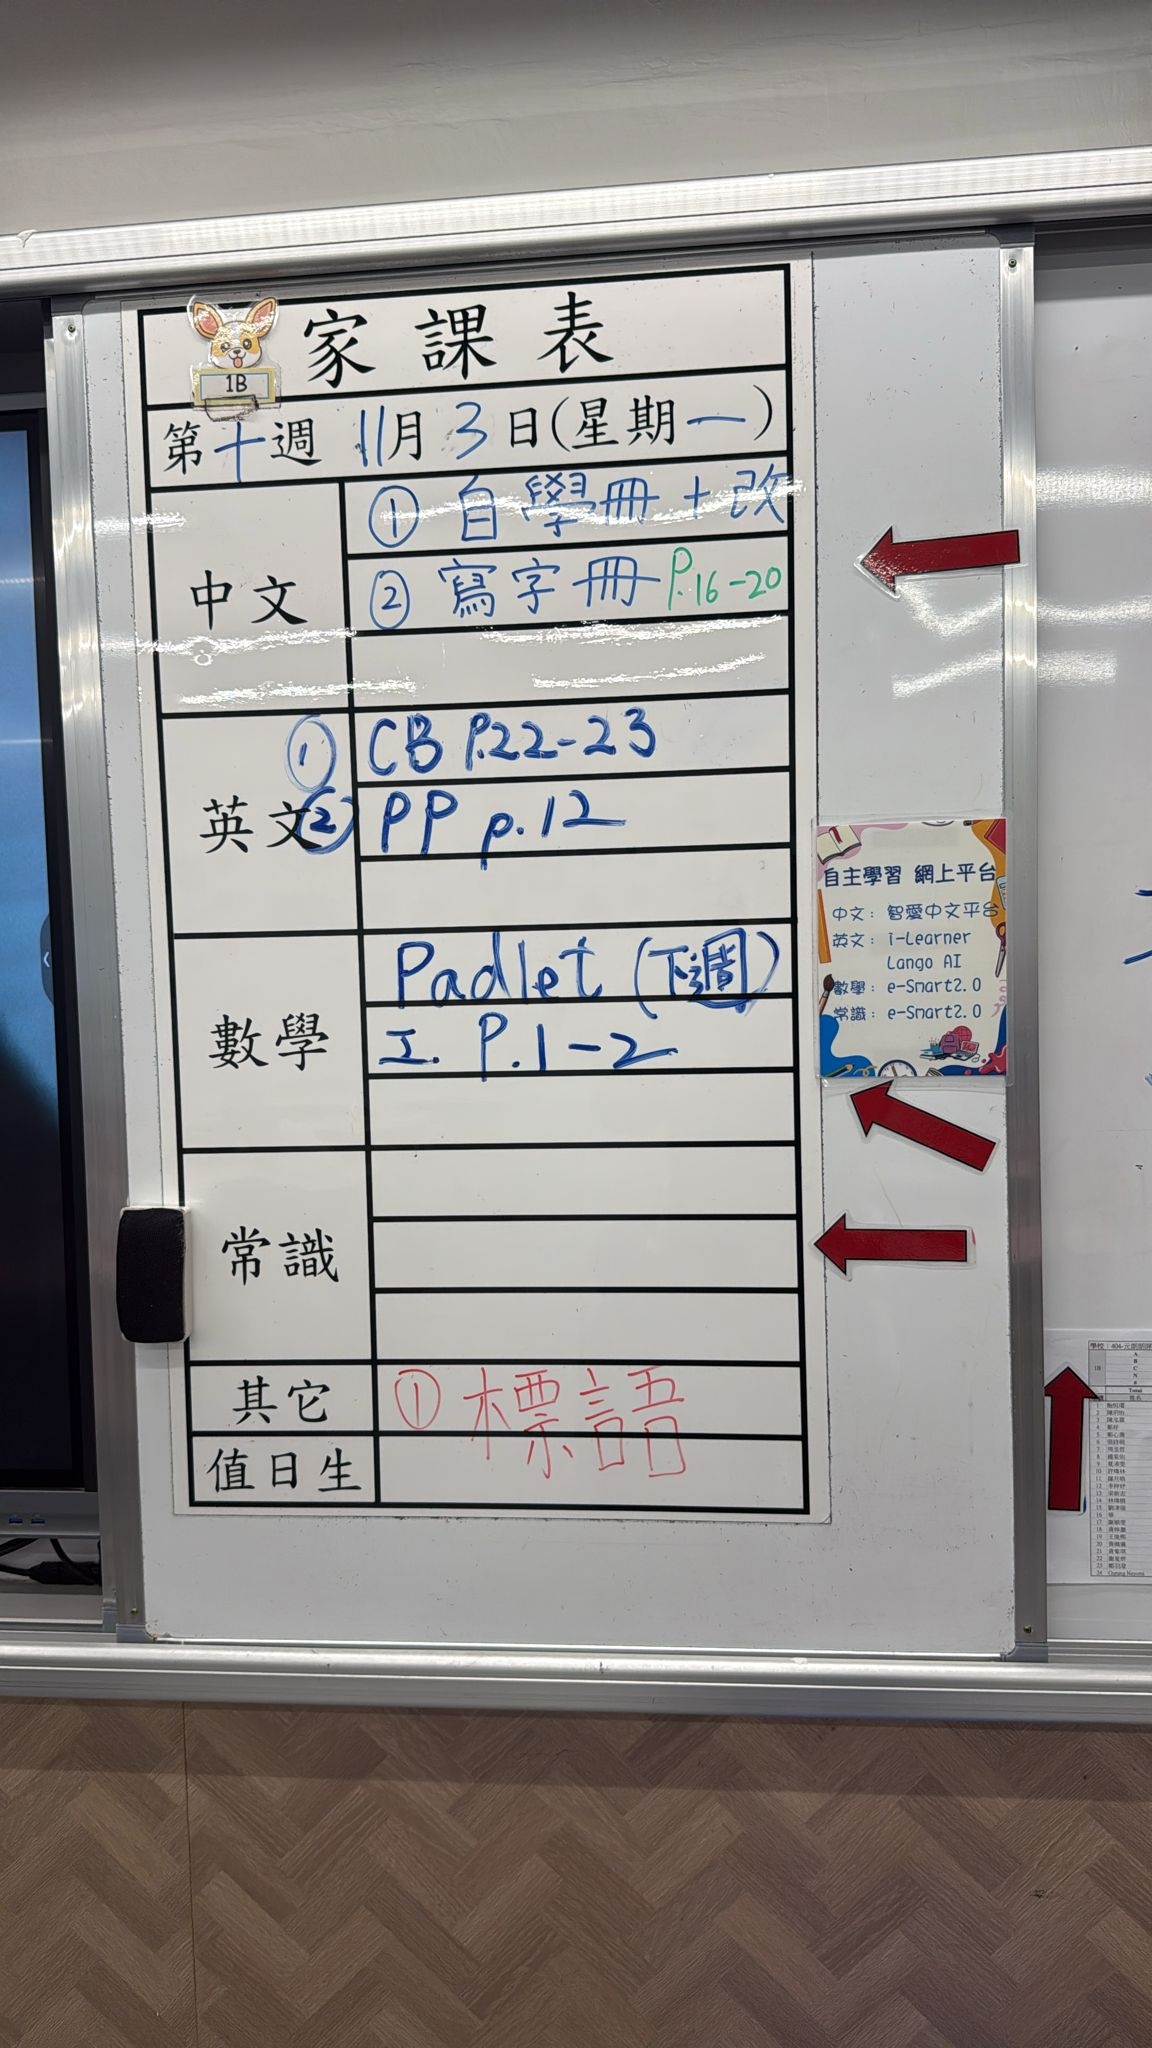 家課表
1B
第十週 11月3日(星期一)
中文
① 自學冊+改
② 寫字冊 P.16-20
英文
① CB P.22-23
② PP p.12
數學
Padlet (下週)
工. P.1-2
常識
其它
① 標語
值日生
自主學習 網上平台
中文：智愛中文平台
英文：i-Learner
Lango AI
數學：e-Smart2.0
常識：e-Smart2.0
1B
A
B
C
N
Total